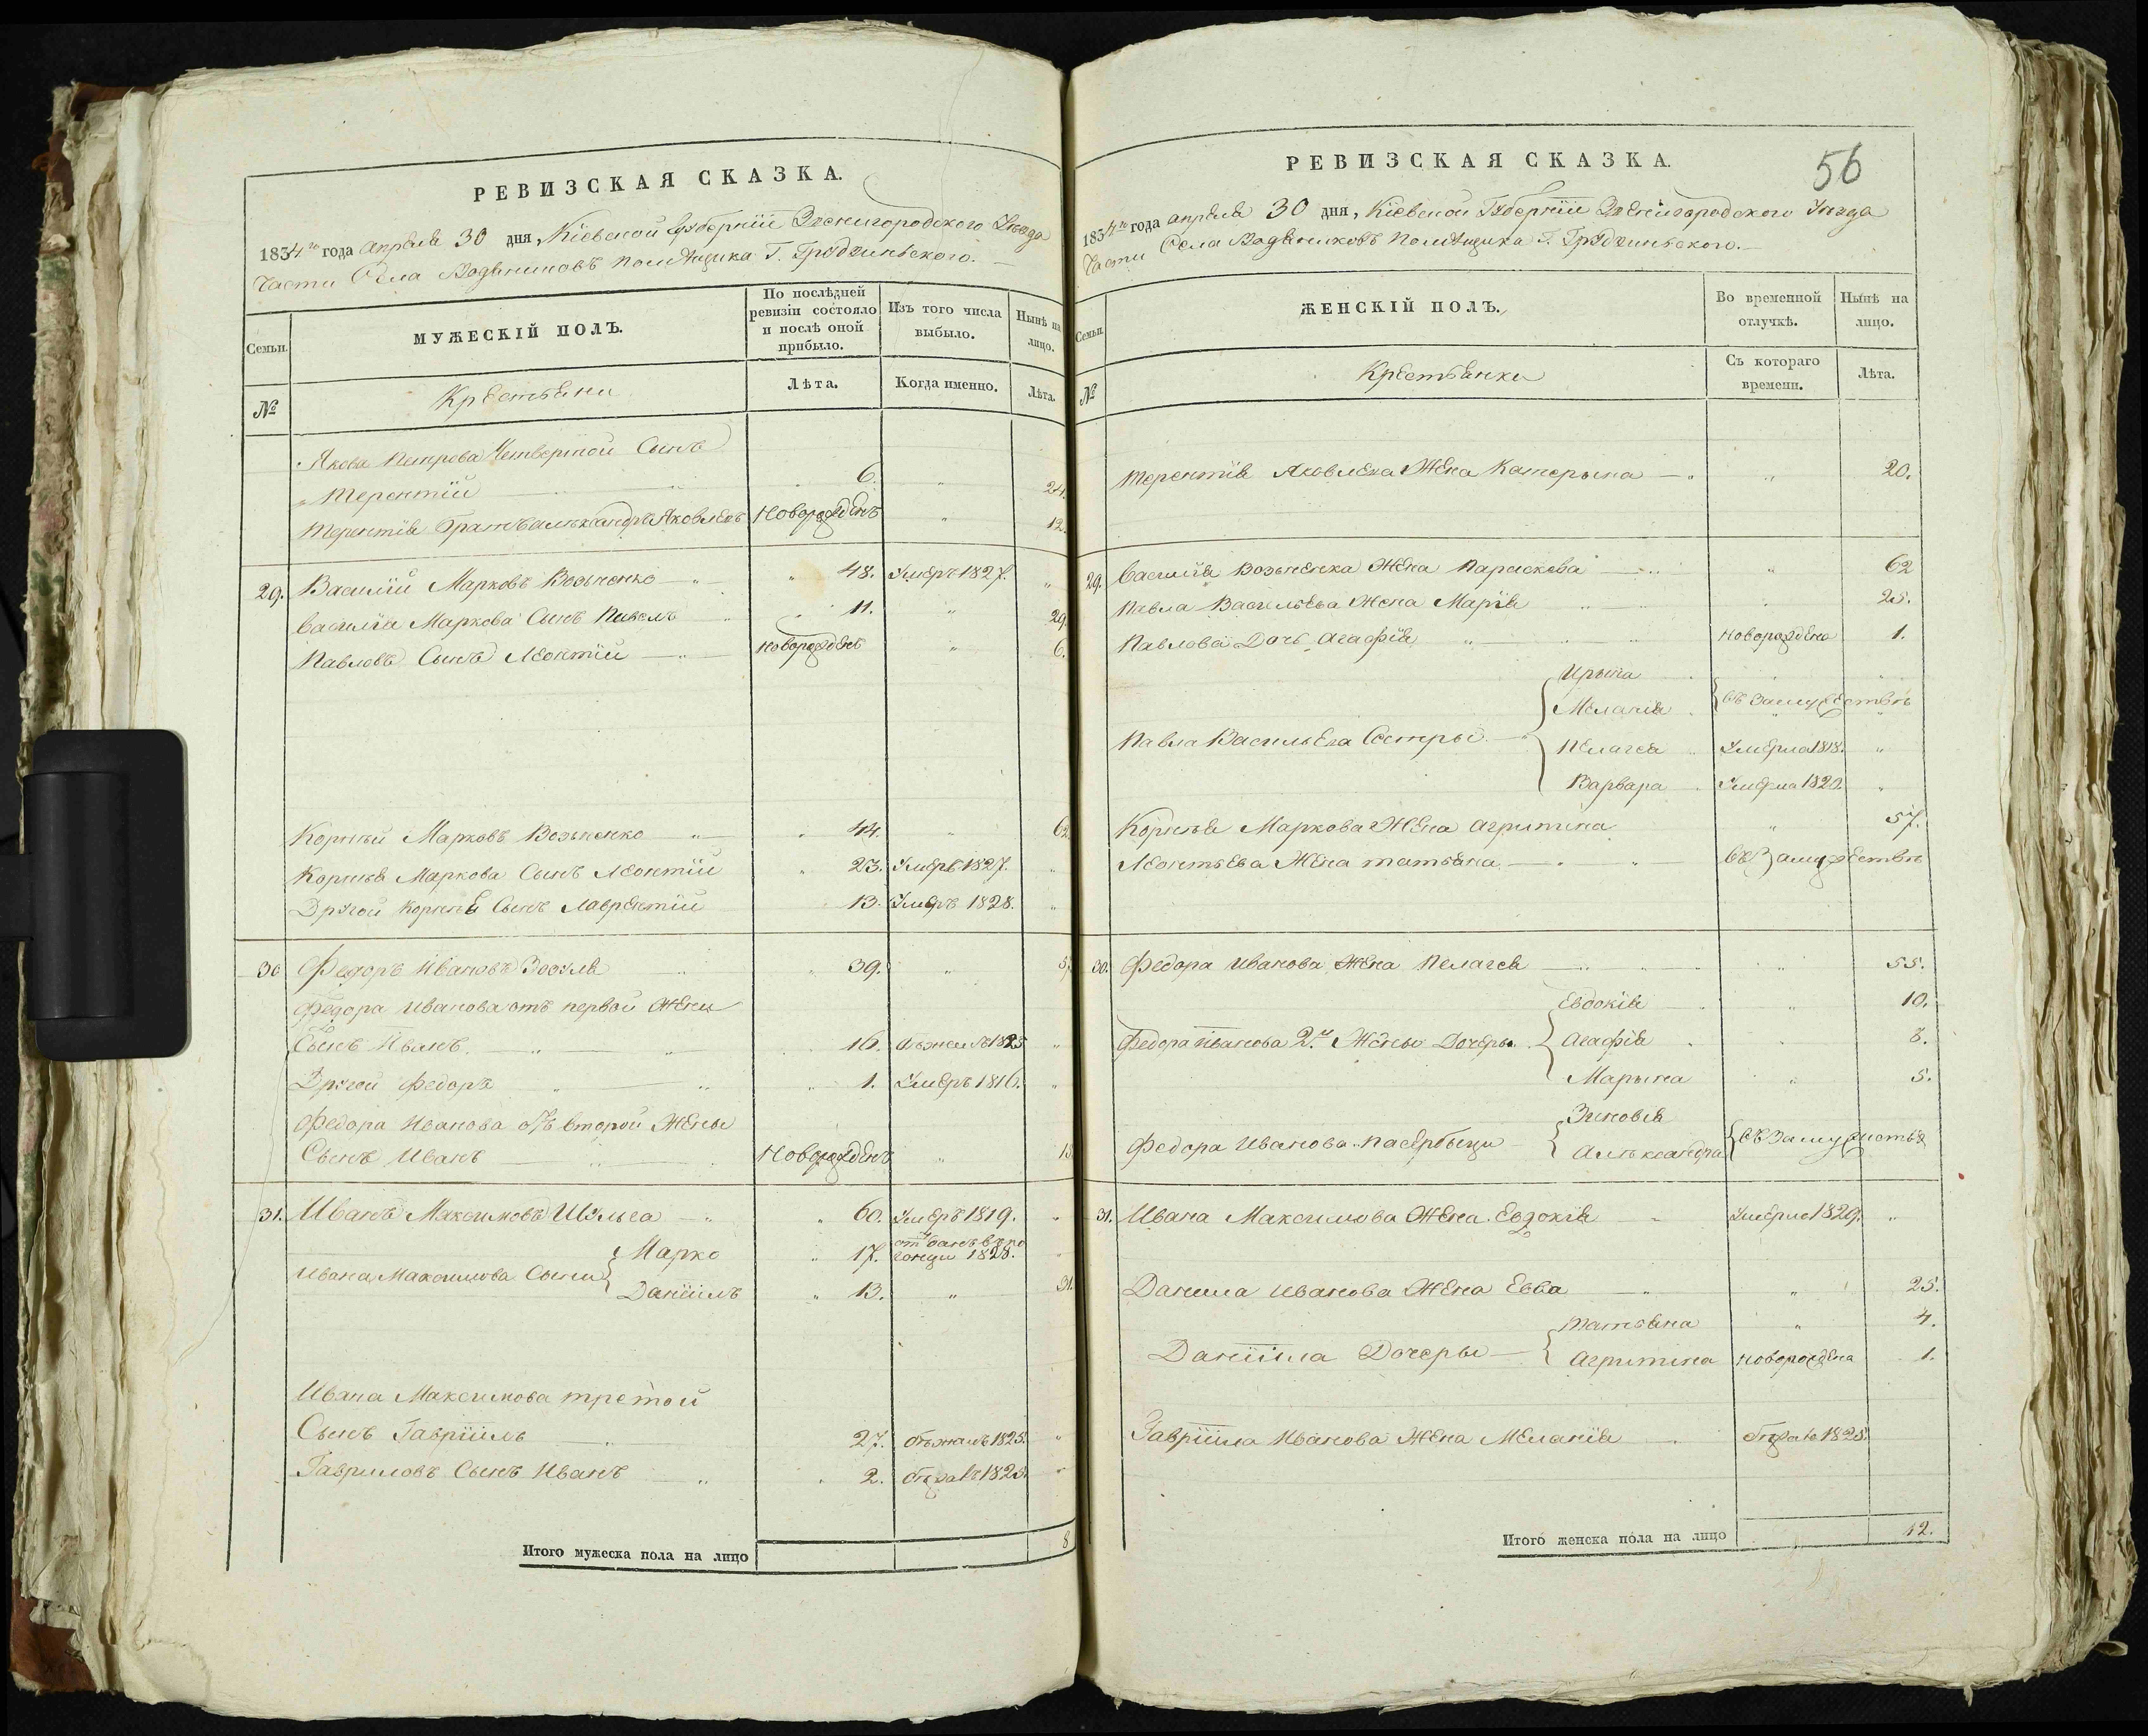 РЕВИЗСКАЯ СКАЗКА.
1834го года апреля 30 дня, Кіевской Губерніи Звенигородского Уезда
Части Села Водяниковъ помещика Г. Грудзинского.
Семьи.
МУЖЕСКІЙ ПОЛЪ.
По послѣдней ревизіи состояло и послѣ оной прибыло.
Изъ того числа выбыло.
Нынѣ на лицо.
№
Крестьяни
Лѣта.
Когда именно.
Лѣта.
Якова Петрова Четвертой Сынъ
Терентій 6. 24.
Терентія братъ Александръ Яковлевъ новорожденъ 12.
29. Василій Марковъ Возьненко 48. Умеръ 1827.
Василія Маркова Сынъ Павелъ 11. 29.
Павловъ Сынъ Леонтій новорожденъ 6.
Корней Марковъ Возьненко 44. 62
Корнея Маркова Сынъ Леонтій 23. Умеръ 1827.
Другой Корнея Сынъ Лаврентій 13. Умеръ 1828.
30 Федоръ Ивановъ Зозуля 39.
Федора Иванова отъ первой жены
Сынъ Иванъ 16. бежалъ 1825
Другой Федоръ 1. Умеръ 1816.
Федора Иванова отъ второй жены
Сынъ Иванъ новорожденъ
31. Иванъ Максимовъ Шульга 60. Умеръ 1819.
Марко 17. 1828.
Ивана Максимова Сыны
Даніилъ 13. 31.
Ивана Максимова третой
Сынъ Гавріилъ 27. бежалъ 1825.
Гавриловъ Сынъ Иванъ 2. 1825.
Итого мужеска пола на лицо 8
РЕВИЗСКАЯ СКАЗКА.
56
1834го года апреля 30 дня, Кіевской Губерніи Звенигородского Уезда
Части Села Водяниковъ помещика Г. Грудзинского.
Семьи.
ЖЕНСКІЙ ПОЛЪ.
Во временной отлучкѣ.
Нынѣ на лицо.
№
Крестьянки
Съ котораго времени.
Лѣта.
Терентія Яковлева жена Катерына 20.
29. Василія Возьненка жена Параскева 62
Павла Васильева жена Марія 25.
Павлова Дочь Агафія новорождена 1.
Ирына
Меланія въ замужествѣ
Павла Васильева Сестры
Пелагея Умерла 1818.
Варвара Умерла 1820.
Корнея Маркова жена Агрипина 57.
Леонтьева жена татьяна въ замужествѣ
30. Федора Иванова жена Пелагея 55.
Евдокія 10.
Федора Иванова 2й жены Дочеры Агафія 8.
Марына 5.
Зиновія
Федора Иванова пасербыцы въ замужествѣ
Александра
31. Ивана Максимова жена Евдокія Умерла 1829.
Данила Иванова жена Евва 25.
Татьяна 4.
Даніила Дочеры Агрипина новорождена 1.
Гавріила Иванова жена Меланія 1825.
Итого женска пола на лицо 12.